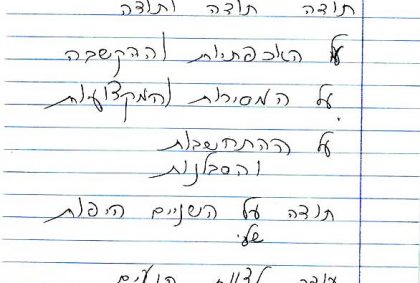 תודה תודה ותודה
על האכפתיות וההקשבה
על המסירות והמקצועיות
על ההתחשבות
והסבלנות
תודה על השניים היפות
שלי